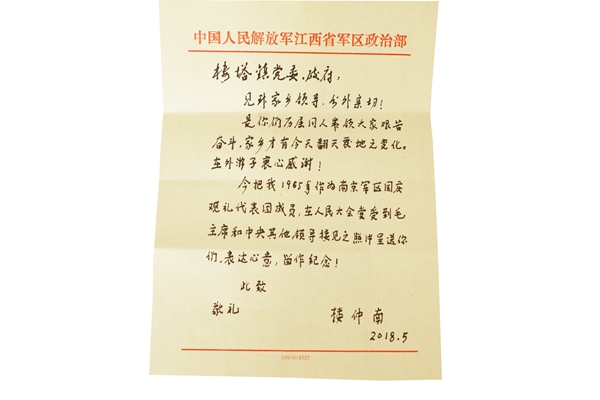 中国人民解放军江西省军区政治部
楼塔镇党委、政府：
见到家乡领导，分外亲切！
是你们历届同人带领大家艰苦
奋斗，家乡才有今天翻天覆地之变化。
在外游子衷心感谢！
今把我1965年作为南京军区国庆
观礼代表团成员，在人民大会堂受到毛
主席和中央其他领导接见之照片呈送你
们，表达心意，留作纪念！
此致
敬礼
楼仲南
2018.5